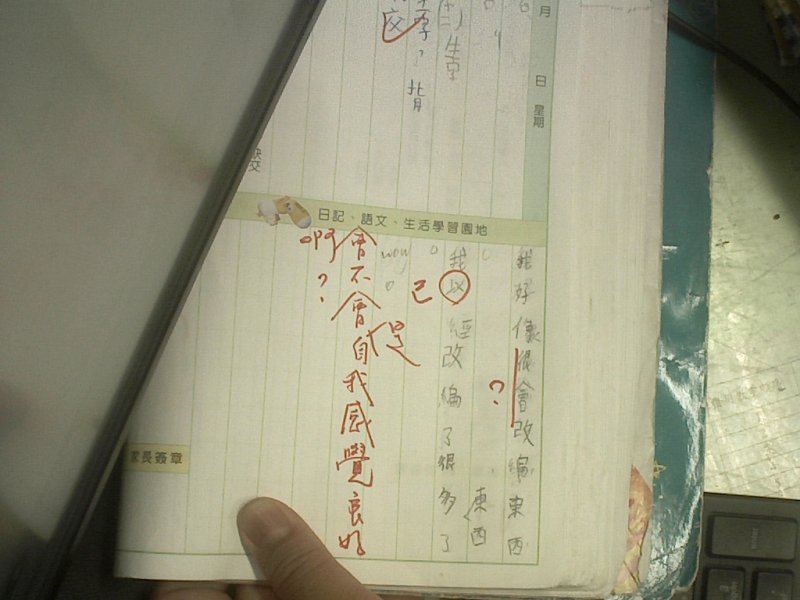 月
日
星期
(十二)生字
字, 背
交
日記、語文、生活學習園地
我好像很會改編東西
。
?
東西
我以經改編了很多了
己
。
wow
。
會不會是自我感覺良好
啊?
家長簽章